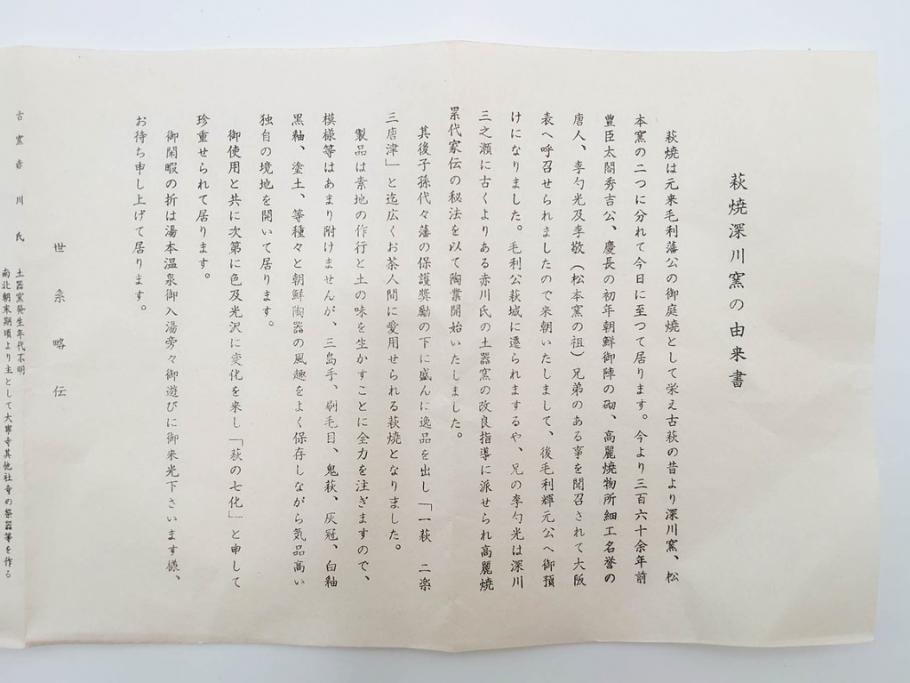 萩焼深川窯の由来書
萩焼は元来毛利藩公の御庭焼として栄え古萩の昔より深川窯、松
本窯の二つに分れて今日に至つて居ります。今より三百六十余年前
豊臣太閤秀吉公、慶長の初年朝鮮御陣の砌、高麗焼物所細工名誉の
唐人、李勺光及李敬（松本窯の祖）兄弟のある事を聞召されて大阪
表へ呼召せられましたので来朝いたしまして、後毛利輝元公へ御預
けになりました。毛利公萩城に遷られまするや、兄の李勺光は深川
三之瀬に古くよりある赤川氏の土器窯の改良指導に派せられ高麗焼
累代家伝の秘法を以て陶業開始いたしました。
其後子孫代々藩の保護奨励の下に盛んに逸品を出し「一萩　二楽
三唐津」と迄広くお茶人間に愛用せられる萩焼となりました。
製品は素地の作行と土の味を生かすことに全力を注ぎますので、
模様等はあまり附けませんが、三島手、刷毛目、鬼萩、灰冠、白釉
黒釉、塗土、等種々と朝鮮陶器の風趣をよく保存しながら気品高い
独自の境地を開いて居ります。
御使用と共に次第に色及光沢に変化を来し「萩の七化」と申して
珍重せられて居ります。
御閑暇の折は湯本温泉御入湯旁々御遊びに御来光下さいます様、
お待ち申し上げて居ります。
世系略伝
古窯赤川氏
土器窯発生年代不明
南北朝末期頃より主として大寧寺其他社寺の祭器等を作る